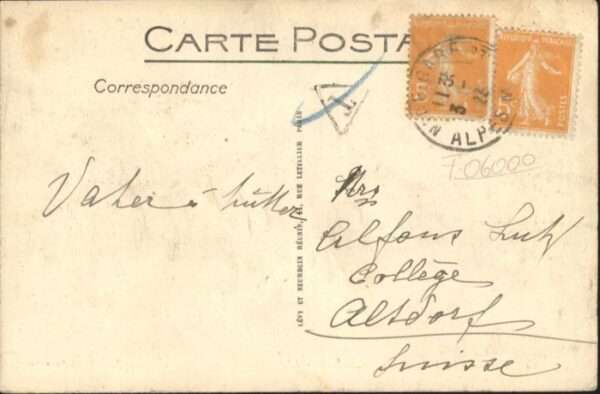 CARTE POSTA
Correspondance
T
ALPES
POSTES
T.06000
Vater & Mutter
LÉVY ET NEURDEIN RÉUNIS, 44, RUE LETELLIER PARIS
Hrn
Alfons Lutz
Collège
Altdorf
Suisse